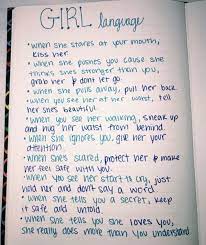 GIRL language
• when she stares at your mouth,
kiss her
• when she pushes you cause she
thinks shes stronger than you,
grab her & dont let go
• when she pulls away, pull her back
• when you see her at her worst, tell
her shes beautiful
• when you see her walking, sneak up
and hug her waist from behind.
• when she ignores you, give her your
attention
• when shes scared, protect her & make
her feel safe with you.
• when you see her start to cry, just
hold her and dont say a word
• when she tells you a secret, keep
it safe and untold.
• when she tells you she loves you,
she really does more than you understand